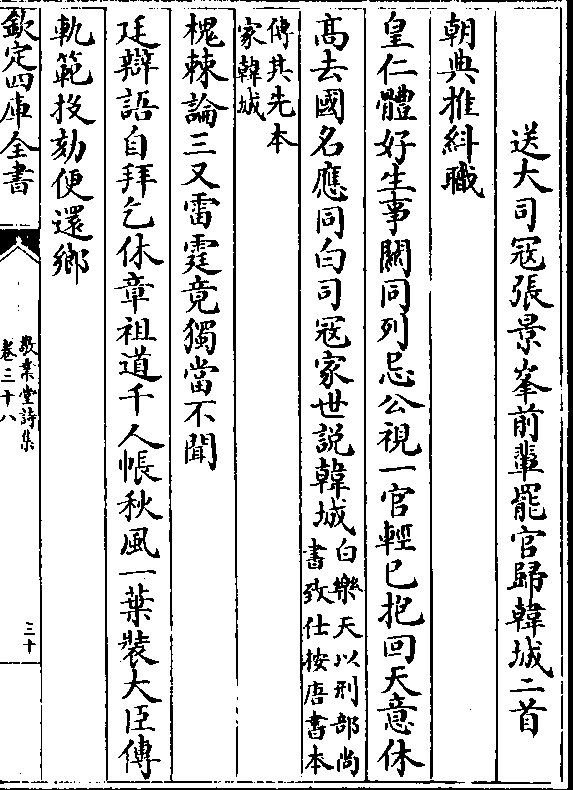 送大司冦張景峯前輩罷官歸韓城二首
朝典推糾職
皇仁體好生事闗同列忌公視一官輕已把回天意休
髙去國名應同白司冦家世説韓城白樂天以刑部尚
書致仕按唐書本
傳其先本
家韓城
槐棘論三又雷霆竟獨當不聞
廷辯語自拜乞休章祖道千人帳秋風一葉裝大臣傳
軌範投劾便還鄉
欽定四庫全書
敬業堂詩集
卷三十八
三十